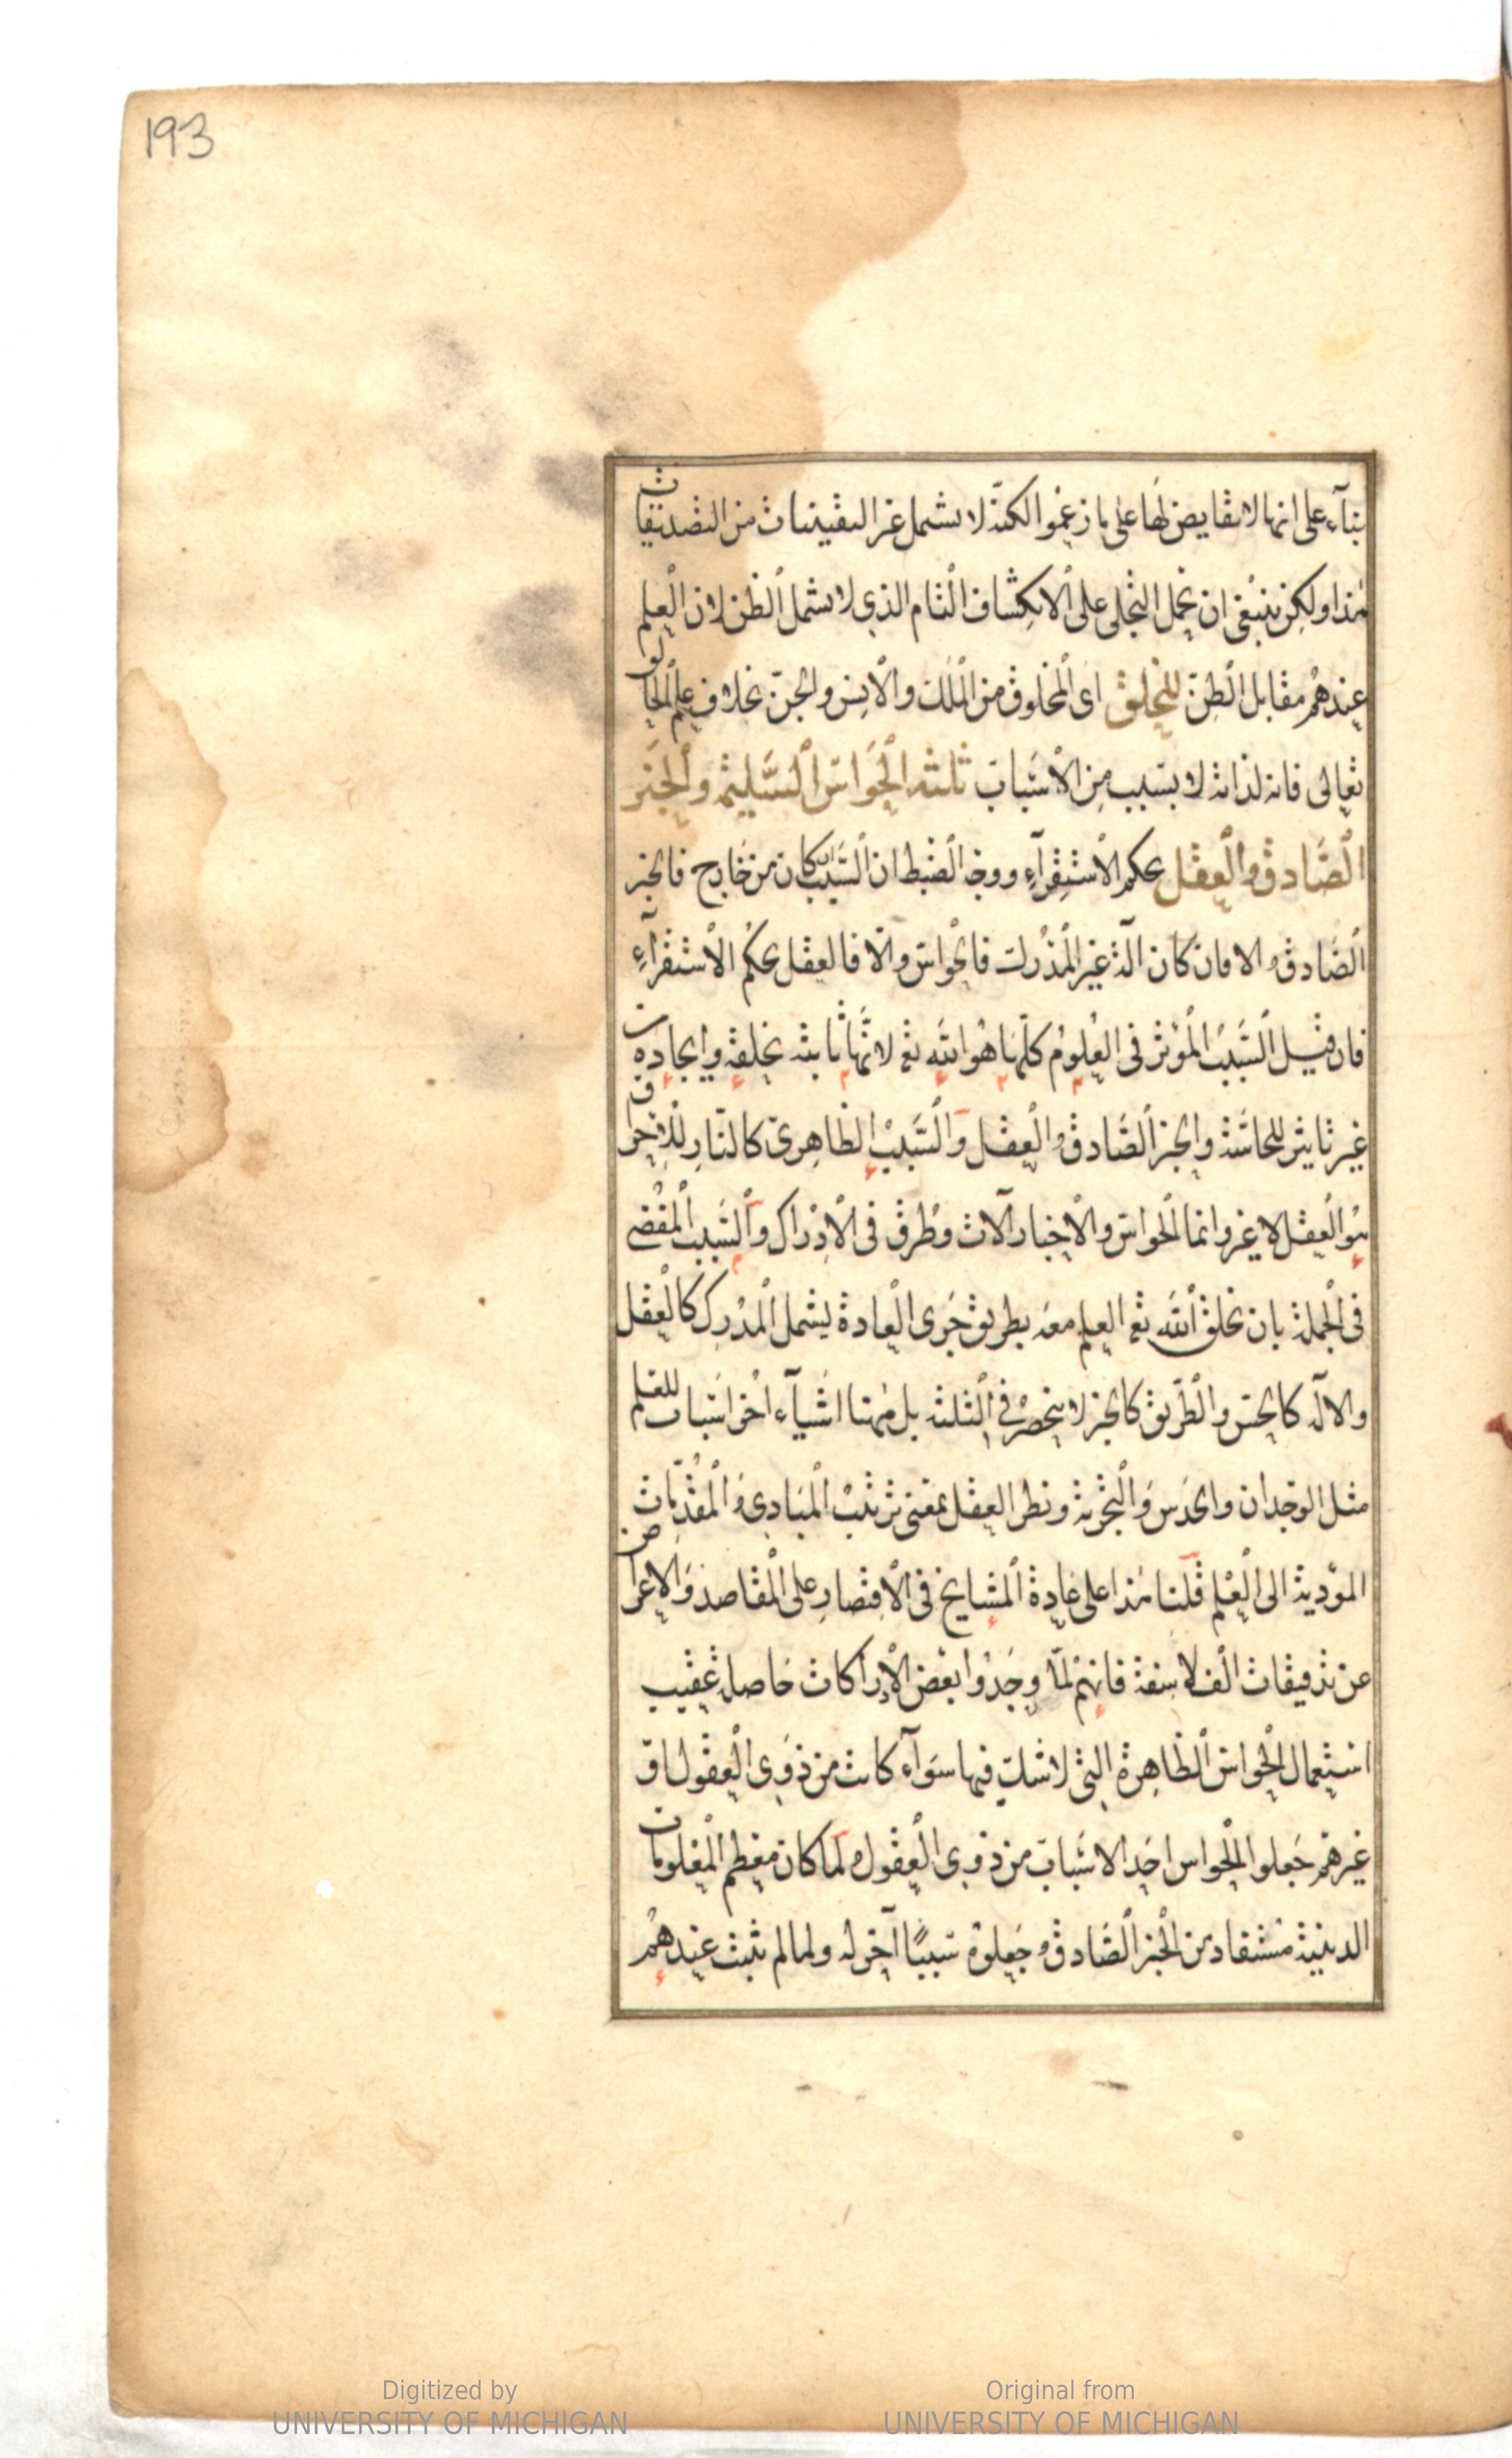 193
بناء على انها لا نقايض لها على ما زعموا لكنه لا يشمل غير اليقينيات من التصديقات
هذا ولكن ينبغي ان يحمل التجلى على الانكشاف التام الذي لا يشمل الظن لان العلم
عندهم مقابل الظن للخلق اى المخلوق من الملك والانس والجن بخلاف علم الخالق
تعالى فانه لذاته لا بسبب من الاسباب ثلثة الحواس السليمة والخبر
الصادق والعقل بحكم الاستقرآء ووجه الضبط ان السبب ان كان من خارج فالخبر
الصادق والا فان كان آلة غير المدرك فالحواس والا فالعقل بحكم الاستقرآء
فان قيل السبب المؤثر فى العلوم كلها هو الله تع لانها ثابتة بخلقه وايجاده من
غير تاثير للحاسة والخبر الصادق والعقل والسبب الظاهرى كالنار للاحراق
هو العقل لا غير وانما الحواس والاخبار آلات وطرق فى الادراك والسبب المفضى
فى الجملة بان يخلق الله تع العلم معه بطريق جرى العادة ليشمل المدرك كالعقل
والالة كالحس والطريق كالخبر لا ينحصر في الثلثة بل ههنا اشيآء اخر اسباب للعلم
مثل الوجدان والحدس والتجربة ونظر العقل بمعنى ترتيب المبادى والمقدمات
المؤدية الى العلم قلنا هذا على عادة المشايخ فى الاقتصار على المقاصد والاعراض
عن تدقيقات الفلاسفة فانهم لما وجدوا بعض الادراكات حاصلة عقيب
استعمال الحواس الظاهرة التى لا شك فيها سوآء كانت من ذوى العقول او
غيرهم جعلوا الحواس احد الاسباب من ذوى العقول ولما كان معظم المعلومات
الدينية مستفاد من الخبر الصادق وجعلوه سببا آخر له ولما لم يثبت عندهم
Digitized by
UNIVERSITY OF MICHIGAN
Original from
UNIVERSITY OF MICHIGAN